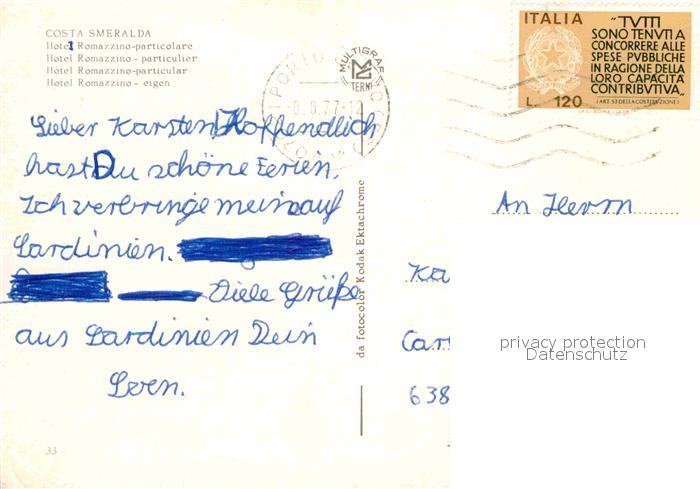 COSTA SMERALDA
Hotel Romazzino-particolare
Hotel Romazzino - particulier
Hotel Romazzino-particular
Hotel Romazzino - eigen
ITALIA
"TVTTI
SONO TENVTI A
CONCORRERE ALLE
SPESE PVBBLICHE
IN RAGIONE DELLA
LORO CAPACITÀ
CONTRIBVTIVA„
(ART. 53 DELLA COSTITUZIONE)
L. 120
MULTIGRAF
TERNI
PORTO
-8.8.77-12
Lieber Karsten! Hoffendlich
hast Du schöne Ferien.
Ich verbringe mein auf
Sardinien.
Viele Grüße
aus Sardinien Dein
Sven.
da fotocolor Kodak Ektachrome
An Herrn
Ka
Car
638
privacy protection
Datenschutz
33